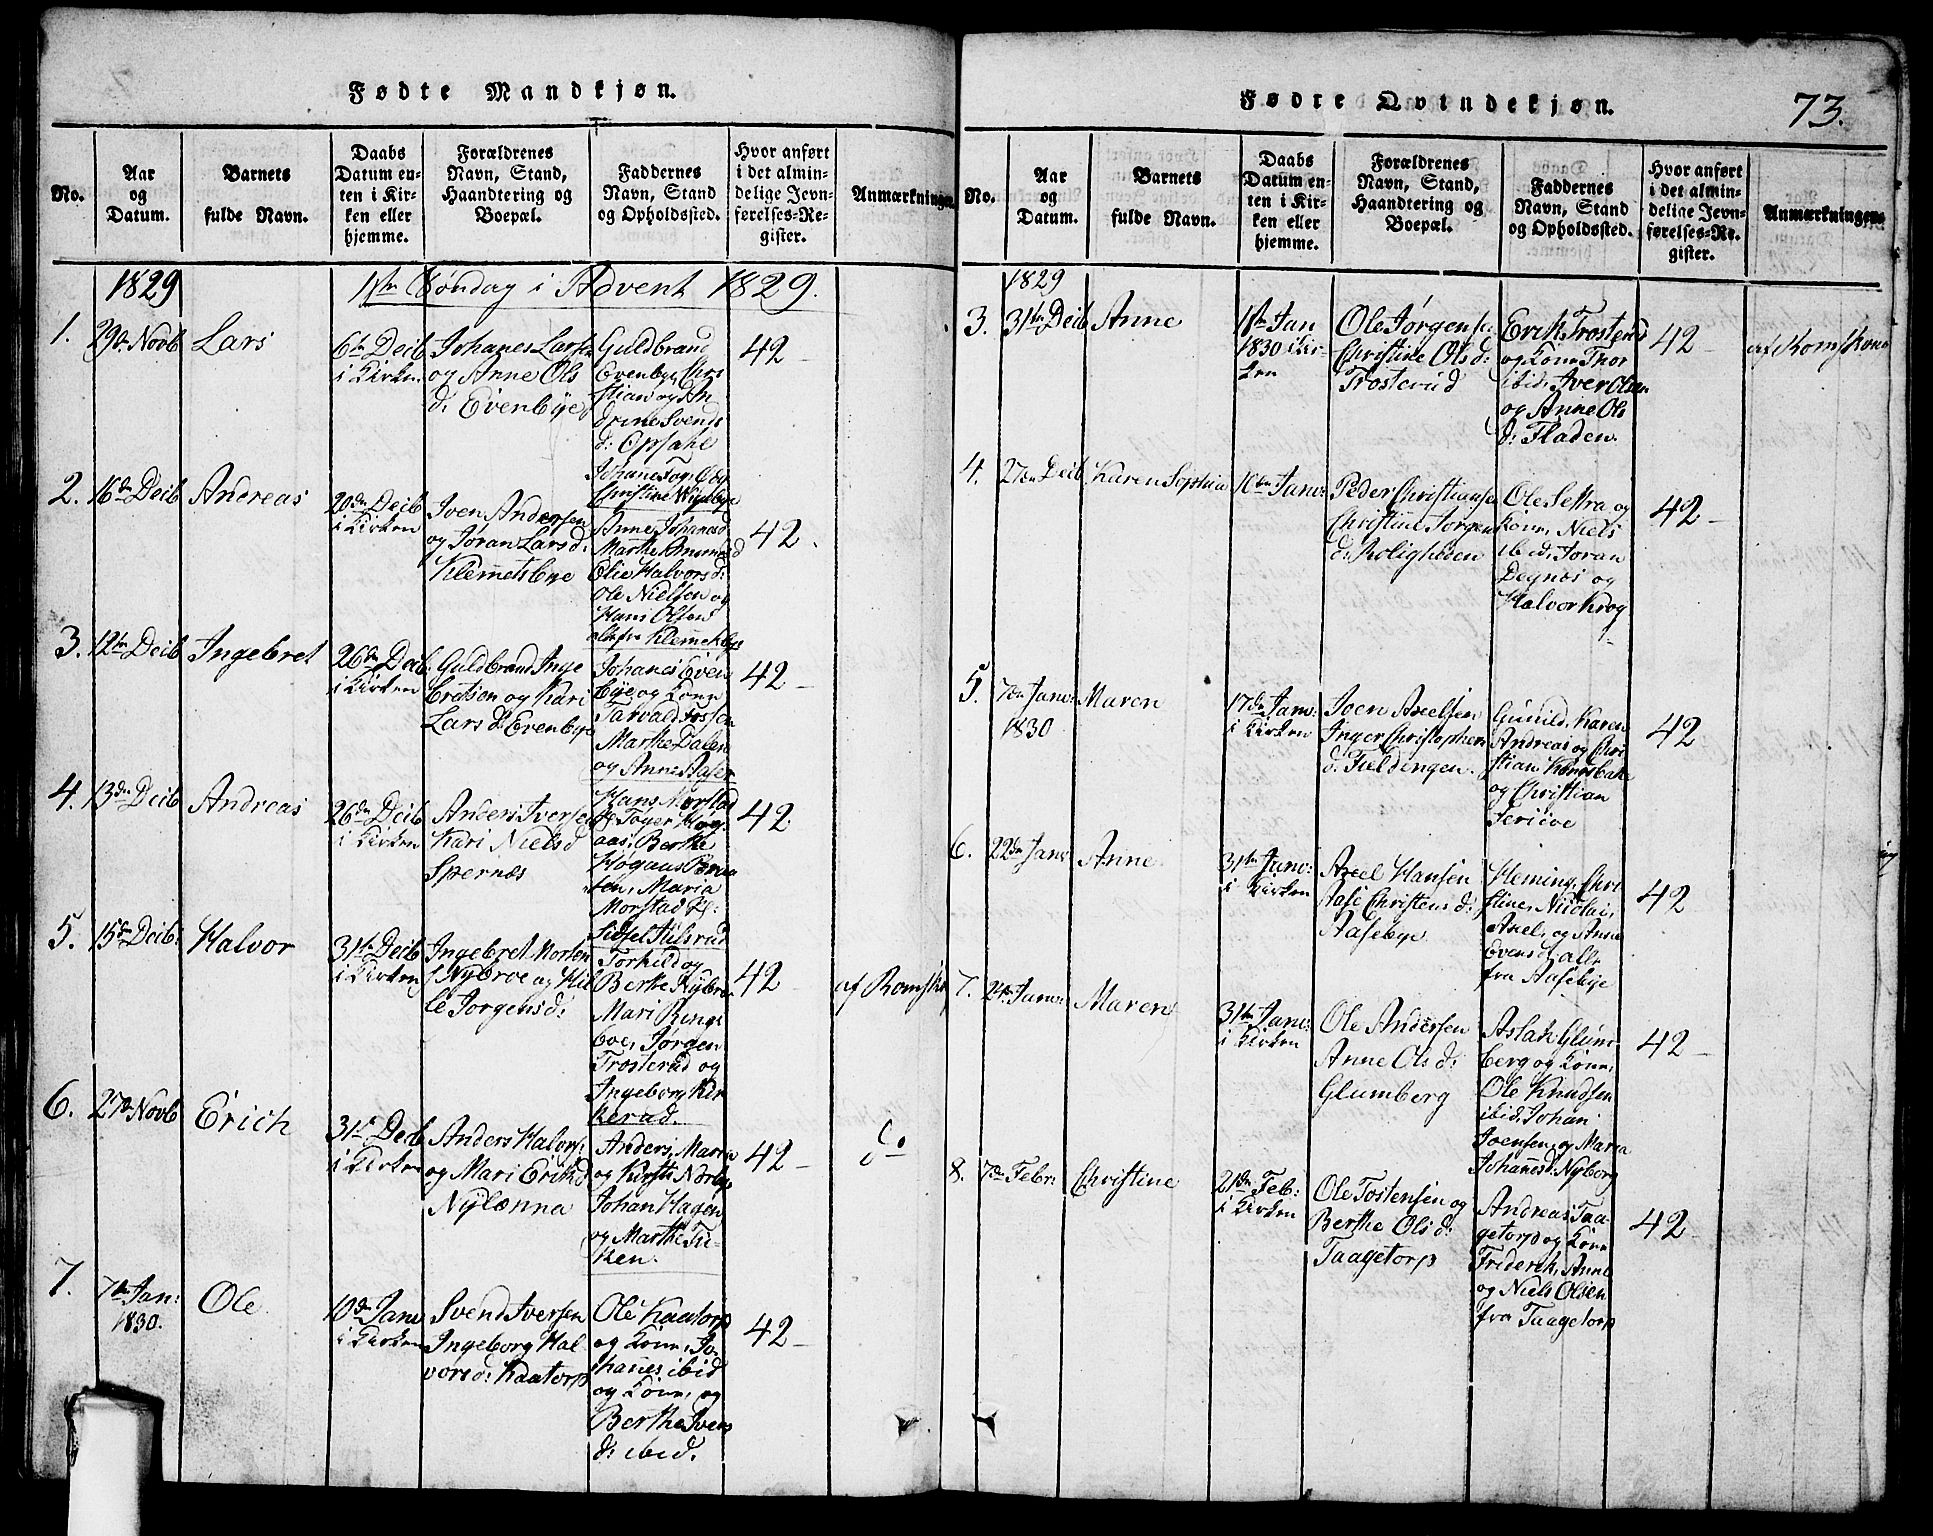 Fødte Mandkjøn.
No.
Aar
og
Datum.
Barnets
fulde Navn.
Daabs
Datum en-
ten i Kir-
ken eller
hjemme.
Forældrenes
Navn, Stand,
Haandtering og
Boepæl.
Faddernes
Navn, Stand
og Opholdssted.
Hvor anført
i det almin-
delige Jevn-
førelses-Re-
gister.
Anmærkninger
1829
1ste Søndag i Advent 1829.
1.
29de Novb
Lars
6te Decb
i Kirken
Johanes Larsen
og Anne Ols
d: Evenbye
Guldbrand
Evenbye, Chri
stian og An
drine Svends
d: Opsahl
42
2.
16de Decb
Andreas
20de Decb
i Kirken
Iven Andersen
og Jøran Lars d:
Klemetsbye
Christine
Anne Johanesd
Marthe
Olie Halvors d:
Ole Nielsen og
Hans Olsen
alle fra Klemetsbye
42.
3.
12te Decb
Ingebret
26de Decb
i Kirken
Guldbrand Inge
bretsen og Kari
Lars d: Evenbye
Johanes Even
bye og Kone
Tarvald Fossen
Marthe Dalen
og Anne Aaser
42
4.
13de Decb
Andreas
26de Decb
i Kirken
Anders Iversen
Kari Niels d
Spernæs
Hans Morstad
aas, Berthe
Maria
Morstad
42
5.
15de Decb:
Halvor
31te Decb
i Kirken
Ingebret Morten
s Nybroe og
Jørgens d:
Torkild og
Berthe Nybroe
Mari Ringe
boe, Jørgen
Trosterud og
Ingeborg Kin
kerud.
42
af Romsk
6.
27de Novb
Erich
31te Decb
i Kirken
Anders Halvors:
og Mari Eriks d
Nylænna
Anders, Maria
og Kirsti Norbye
Johan Hagen
og Marthe Tu-
ken.
42
do
7.
7de Jan:
1830.
Ole
10de Janv
i Kirken
Svend Iversen
Ingeborg Hal
vors d: Kaatorp
Ole Kaatorp
og Kone, Jo-
hanes ibid
og Kone, og
Berthe Ivers
d: ibid.
42
Fødte Qvindekjøn.
73.
No.
Aar
og
Datum.
Barnets
fulde Navn.
Daabs
Datum en-
ten i Kir-
ken eller
hjemme.
Forældrenes
Navn, Stand,
Haandtering og
Boepæl.
Faddernes
Navn, Stand
og Opholdssted.
Hvor anført
i det almin-
delige Jevn-
førelses-Re-
gister.
Anmærkninger
1829
3.
31te Decb
Anne
1ste Jan
1830 i Kir-
ken
Ole Jørgensen
Christine Ols d:
Trosterud
Erik Trosterud
og Kone Thor
ibid, Iver Olsen
og Anne Ols
d: Fladen.
42
af Romskoven
4.
27de Decb
Karen Sophia
10de Janv:
Peder Christiansen
Christine Jørgen
d: Roligheden
Ole Settra og
Kone, Niels
ibid, Jøran
Degnæs og
Halvor Krog
42
5.
7de Janv:
1830
Maren
17de Janv:
i Kirken
Joen Axelsen
Inger Christophers
d: Fieldingen.
Gunild, Karen
Andreas og Chri
stian
og Christian
42
6.
22de Janv
Anne
31te Janv:
i Kirken
Axel Hansen
Aase Christens d:
Aasebye
Heming, Chri
stine, Nicolai,
Axel, og Anne
Evens d, alle
fra Aasebye
42
7.
24de Janv:
Maren
31te Janv:
i Kirken
Ole Andersen
Anne Ols d:
Glumberg
Aslak Glum-
berg og Kone,
Ole Knudsen
ibid, Johan
Joensen, og Maria
Johanes d: Nyborg
42
8.
7de Febr:
Christine
21de Feb:
i Kirken
Ole Tostensen og
Berthe Ols d:
Taagetorp
Andreas Taa-
getorp og Kone
Friderek, Anne
og Niels Olsen
fra Taagetorp
42